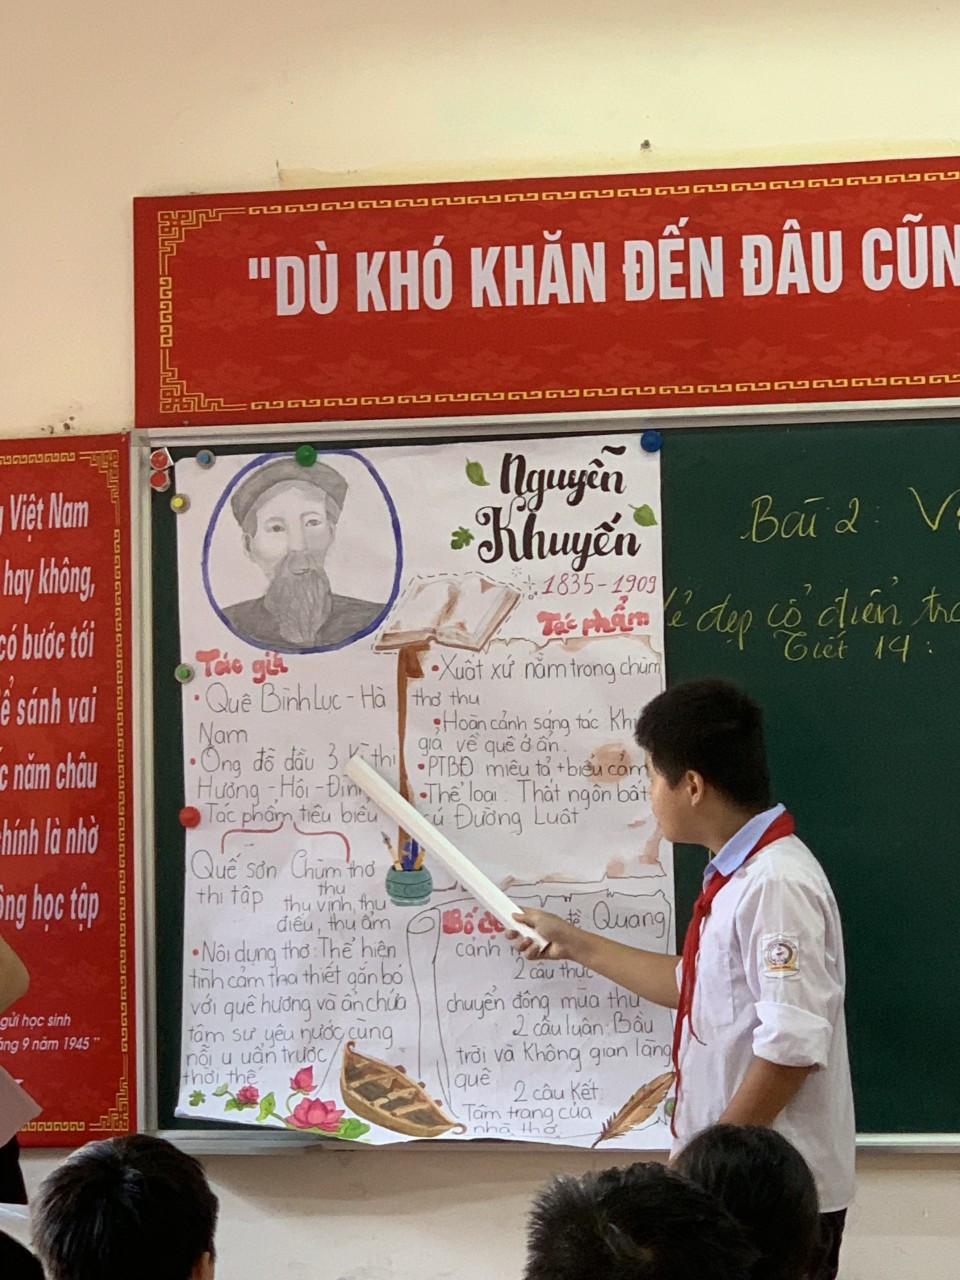 "DÙ KHÓ KHĂN ĐẾN ĐÂU CŨN
Việt Nam
hay không,
có bước tới
sánh vai
năm châu
chính là nhờ
học tập
gửi học sinh
9 năm 1945 "
Nguyễn
Khuyến
1835-1909
Tác giả
• Quê Bình Lục - Hà
Nam
• Ông đỗ đầu 3 kì thi
Hương - Hội - Đình
• Tác phẩm tiêu biểu
Quế sơn
thi tập
Chùm thơ
thu
thu vịnh, thu
điếu, thu ẩm
• Nội dung thơ: Thể hiện
tình cảm tha thiết gắn bó
với quê hương và ẩn chứa
tâm sự yêu nước cùng
nỗi u uẩn trước
thời thế.
Tác phẩm
• Xuất xứ nằm trong chùm
thơ thu
• Hoàn cảnh sáng tác Khi
giả về quê ở ẩn.
• PTBĐ miêu tả + biểu cảm
• Thể loại: Thất ngôn bát
cú Đường Luật
Bố đề: Quang
cảnh
2 câu thực
chuyển động mùa thu
2 câu luận: Bầu
trời và không gian làng
quê
2 câu kết:
Tâm trạng của
nhà thơ.
Bài 2: V
Vẻ đẹp cổ điển tr
Tiết 14: